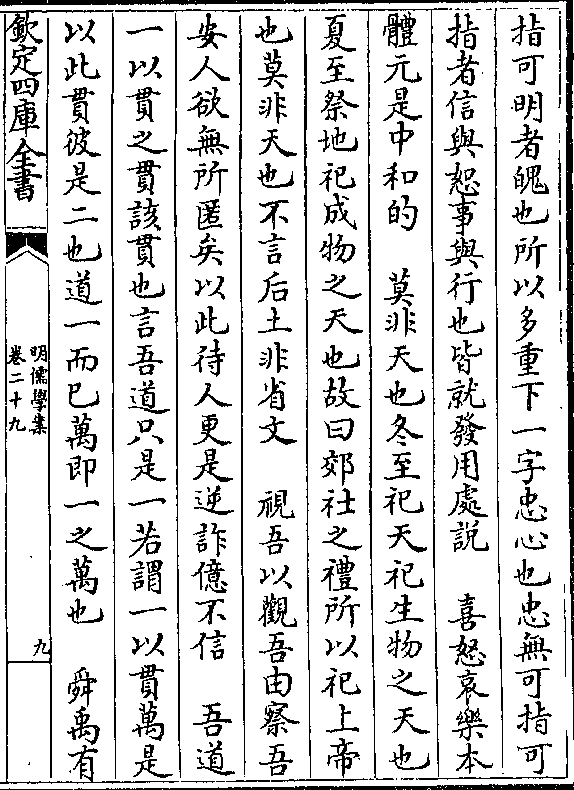 指可明者魄也所以多重下一字忠心也忠無可指可
指者信與恕事與行也皆就發用處說　喜怒哀樂本
體元是中和的　莫非天也冬至祀天祀生物之天也
夏至祭地祀成物之天也故曰郊社之禮所以祀上帝
也莫非天也不言后土非省文　視吾以觀吾由察吾
安人欲無所匿矣以此待人更是逆詐億不信　吾道
一以貫之貫該貫也言吾道只是一若謂一以貫萬是
以此貫彼是二也道一而已萬即一之萬也　舜禹有
欽定四庫全書
明儒學案
卷二十九
九